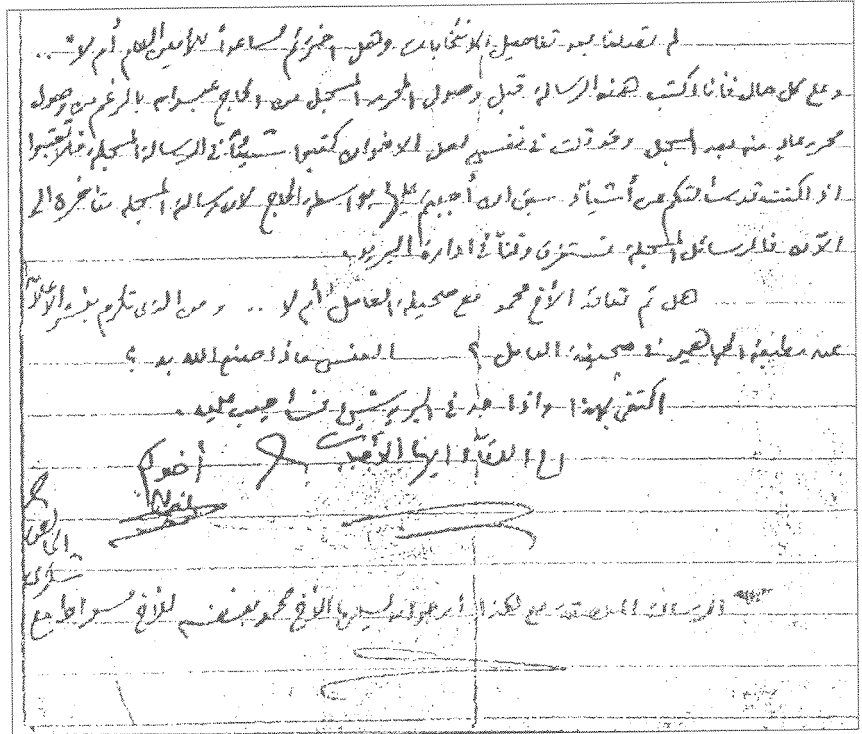 لم تصلنا بعد تفاصيل الانتخابات وهل اخترتم مساعداً للأمين العام أم لا ..
وعلى كل حال فأنا اكتب هذه الرسالة قبل وصول المحرر المسجل من الحاج عبدالله بالرغم من وصول
محرر عادي منه بعد المسجل وقد قلت في نفسي لعل الاخوان كتبوا شيئاً في الرسالة المسجلة فلا تعجبوا
اذا كنت قد سألتكم عن أشياء سبق ان أجبتم عليها بواسطة الحاج لان رسالته المسجلة متأخرة الى
الآن فالرسائل المسجلة تستغرق وقتاً في ادارة البريد.
هل تم تعاقد الأخ محمد مع صحيفة العامل أم لا .. ومن الذي تكرم بنشر
عن مطبعة الجماهير في صحيفة العامل ؟ العفس ماذا صنع الله به ؟
اكتفي بهذا واذا جد في البريد شيء فسأجيب عليه.
الى اللقاء ايها الأحبة
أخوكم
الرسالة الملصقة مع هذا أرجو ان يسلمها الأخ محمد بنفسه للأخ مع